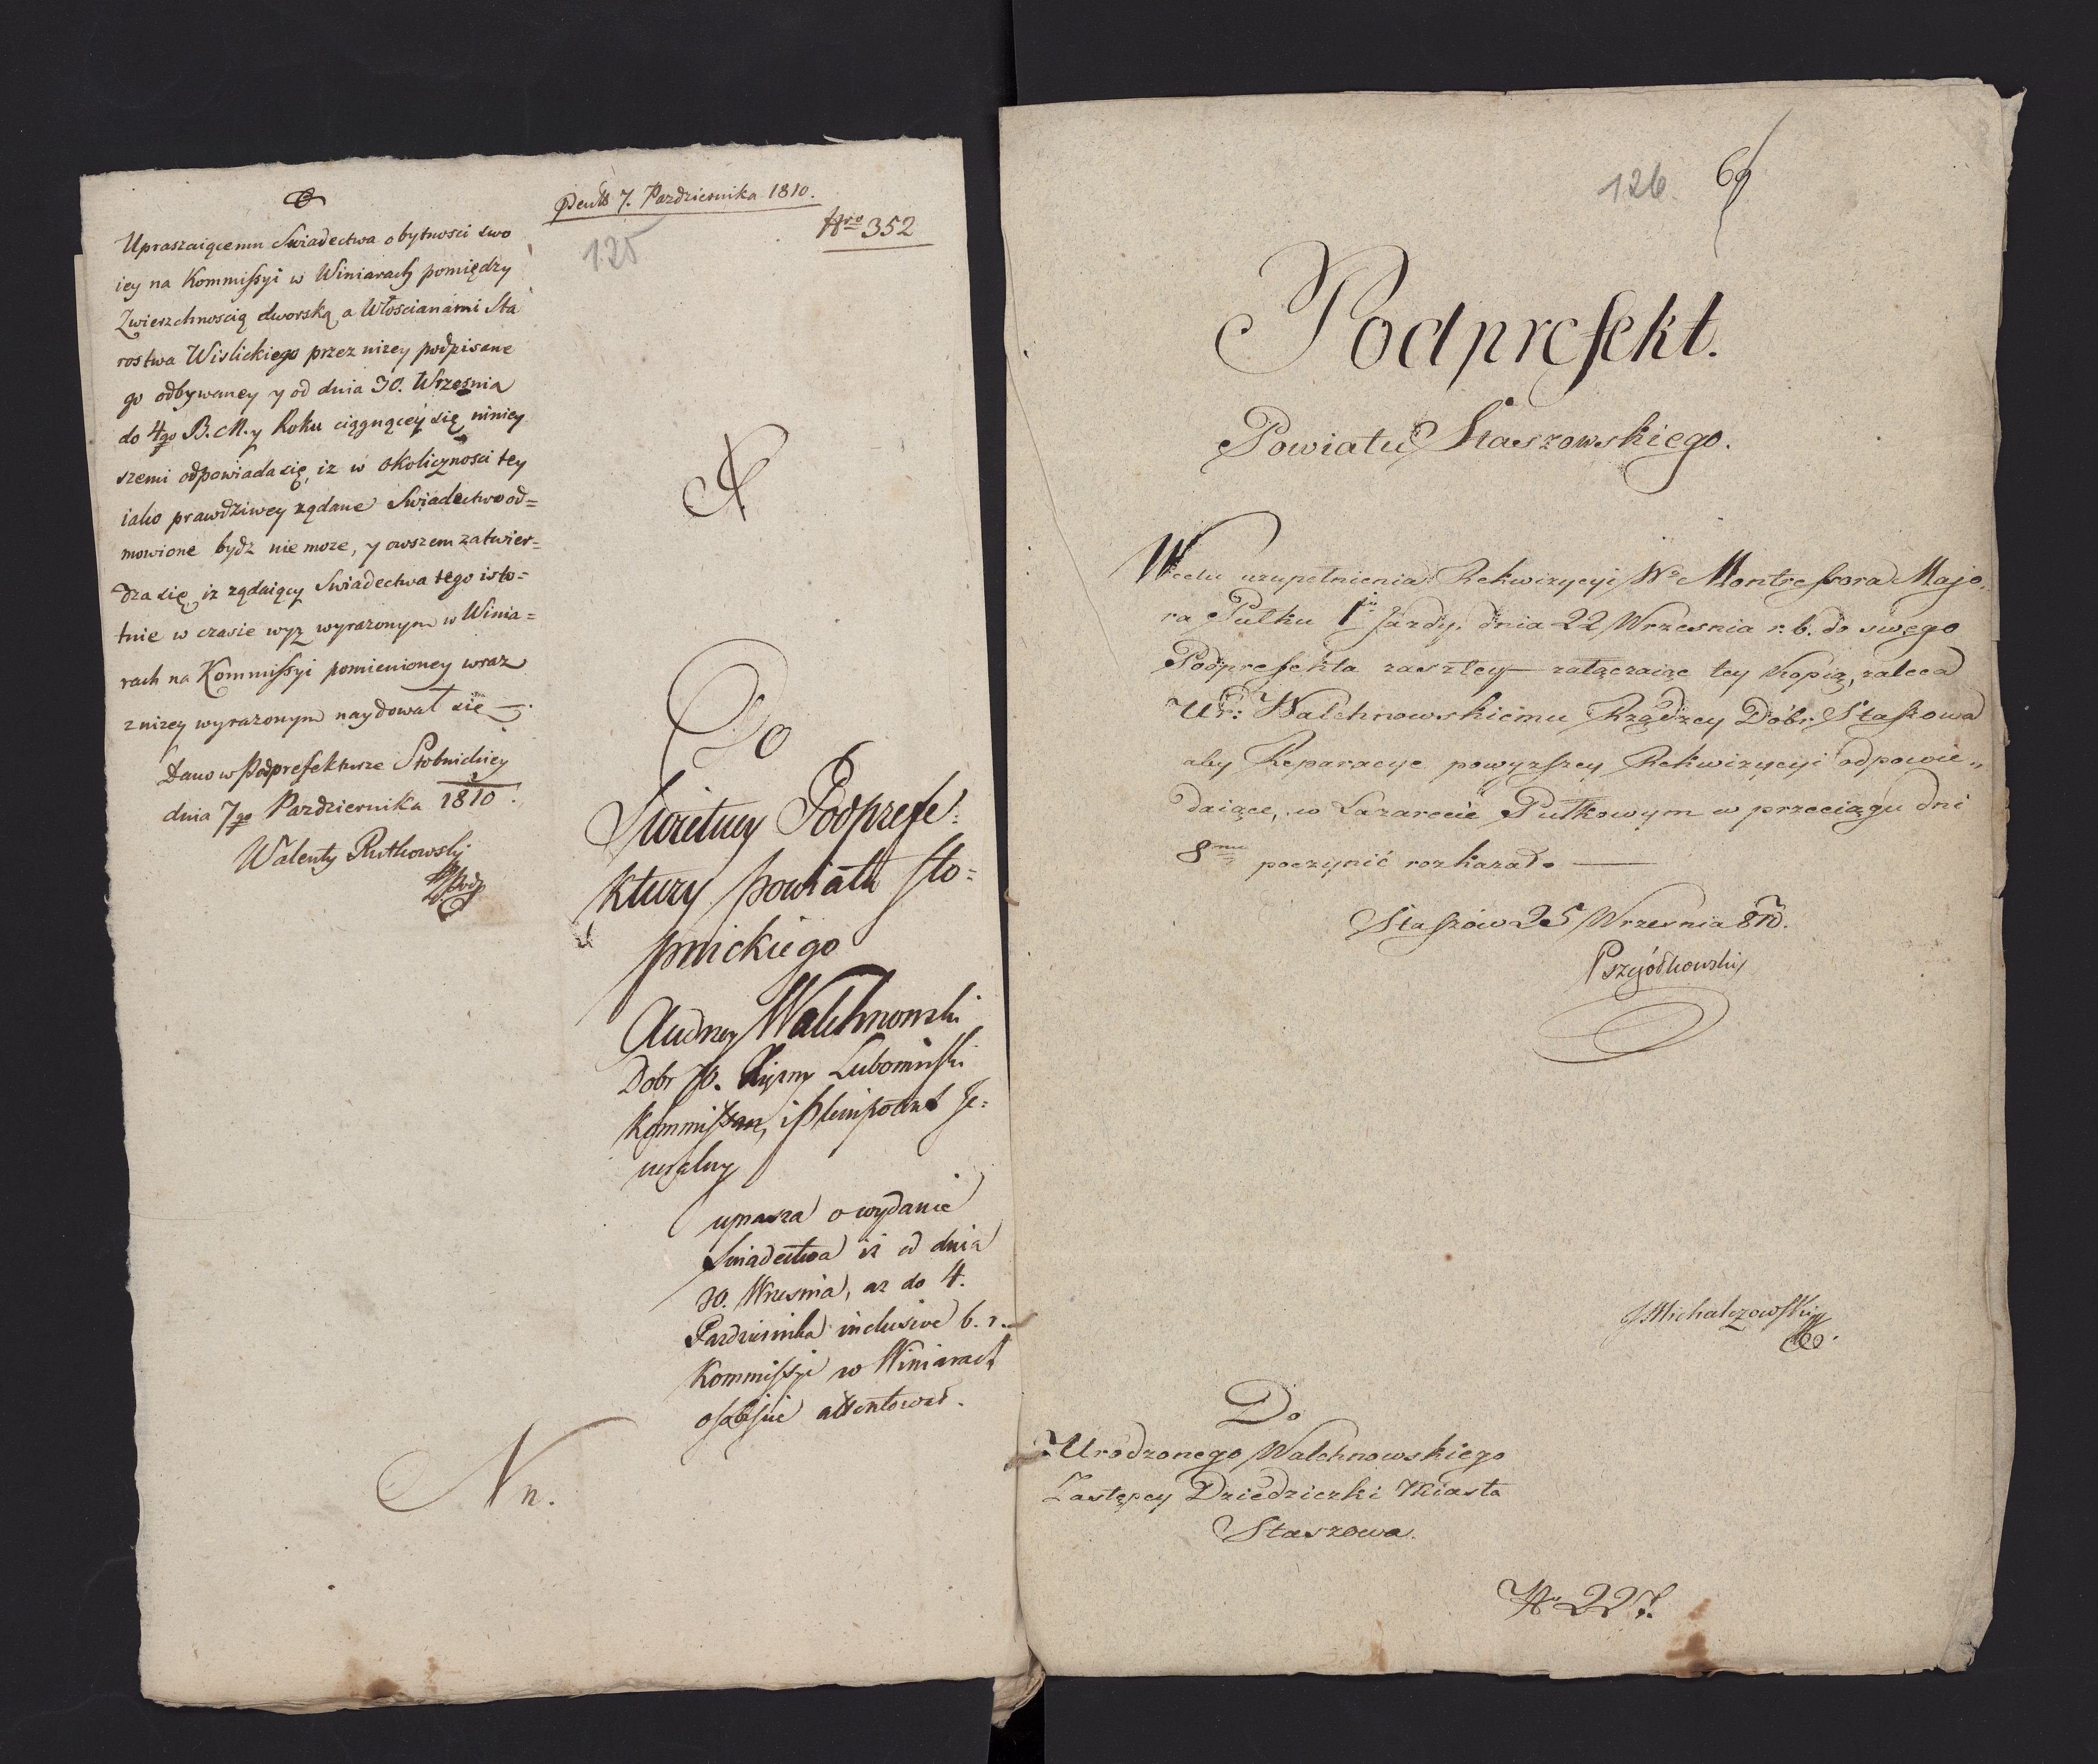 Upraszaiącemu Swiadectwa o bytnosci swo
iey na Kommissyi w Winiarach pomiędzy
Zwierzchnoscią dworską a Włoscianami Sta
rostwa Wislickiego przez nizey podpisane
go odbywaney y od dnia 30. Wrzesnia
do 4go B. M. y Roku ciągnącey się niniey
szemi odpowiada się, iz w okolicznosci tey
iako prawdziwey ządane Swiadectwo od=
mowione bydz nie moze, y owszem zatwier=
dza się iz ządaiący Swiadectwa tego isto=
tnie w czasie wyz wyrazonym w Winia=
rach na Kommissyi pomienioney wraz
z nizey wyrazonym naydował się —.
Dano w Podprefekturze Stobnickiey
dnia 7go Pazdziernika 1810.
Walenty Rutkowski
Podp
7. Pazdziernika 1810.
Nro 352
125
Do
Swietney Podprefe=
ktury powiatu Sto=
pnickiego
Andrzey Walchnowski
Dobr JO. Xiężny Lubomirski
Kommissarz, i Plenipotent Je=
neralny
uprasza o wydanie
Swiadectwa iż od dnia
30. Wrzesnia, az do 4.
Pazdziernika inclusive b. r.
Kommissyi w Winiarach
osobiscie attentował.
Nn.
126. 69
Podprefekt.
Powiatu Staszowskiego.
W celu uzupełnienia Rekwizycyi Wo Montressora Majo„
ra Pułku 1go Jazdy. dnia 22 Wrzesnia r. b. do swego
Podprefekta zaszłey — załączaiąc tey Kopią, zaleca
Ur: Walchnowskiemu Rządzcy Dobr Staszowa
aby Reparacye powyzszey Rekwizycyi odpowie„
daiące, w Lazarecie Pułkowym w przeciągu dni
8miu poczynić rozkazał. —
Staszów 25 Wrzesnia 810.
Pszyółkowski
JMichalczowski
Do
Urodzonego Walchnowskiego
Zastępcy Dziedziczki Miasta
Staszowa.
No 227.